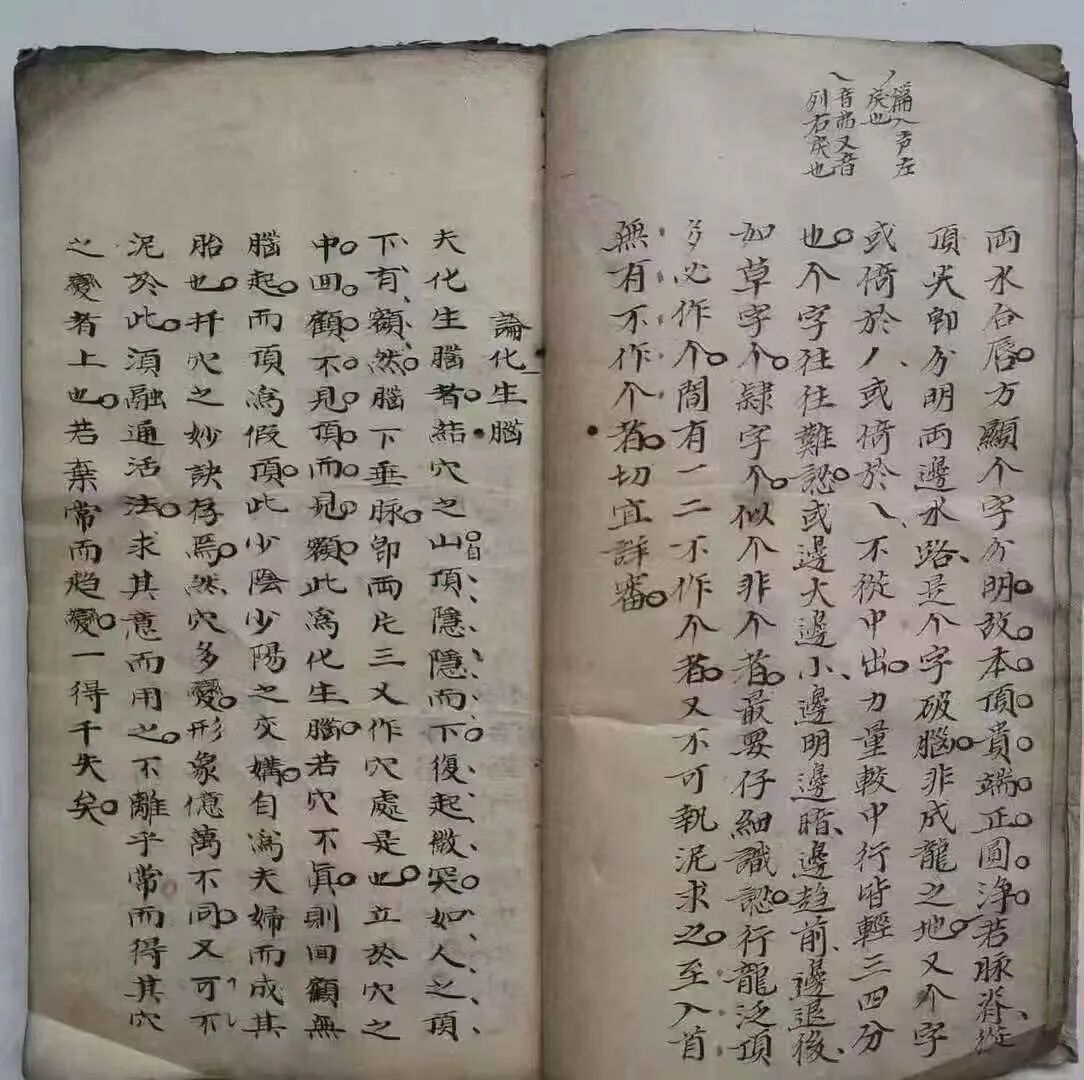 丿音入声左
戾也
乀音𠚤又音
列右戾也
両水合唇方顯个字分明故本頂貴端正圓浄若脉脊縱
頂尖卽分明両邊水路是个字破腦非成龍之地又个字
或倚於丿或倚於乀不從中出力量較中行皆輕三四分
也个字往往難認或邊大邊小邊明邊暗邊趋前邊退後
如草字个隸字个似个非个者最要仔細識認行龍泛頂
多必作个間有一二不作个者又不可執泥求之至入首
無有不作个者切宜詳審
論化生腦
夫化生腦者結穴之山自頂隱隱而下復起微突如人之頂
下有額然腦下垂脉卽両片三乂作穴處是也立於穴之
中囬顧不見頂而見額此為化生腦若穴不眞則囬顧無
腦起而頂為假頂此少陰少陽之交媾自為夫婦而成其
胎也扦穴之妙訣存焉然穴多變形象億萬不同又可不
泥於此須融通活法求其意而用之不離乎常而得其穴
之變者上也若棄常而趋變一得千失矣